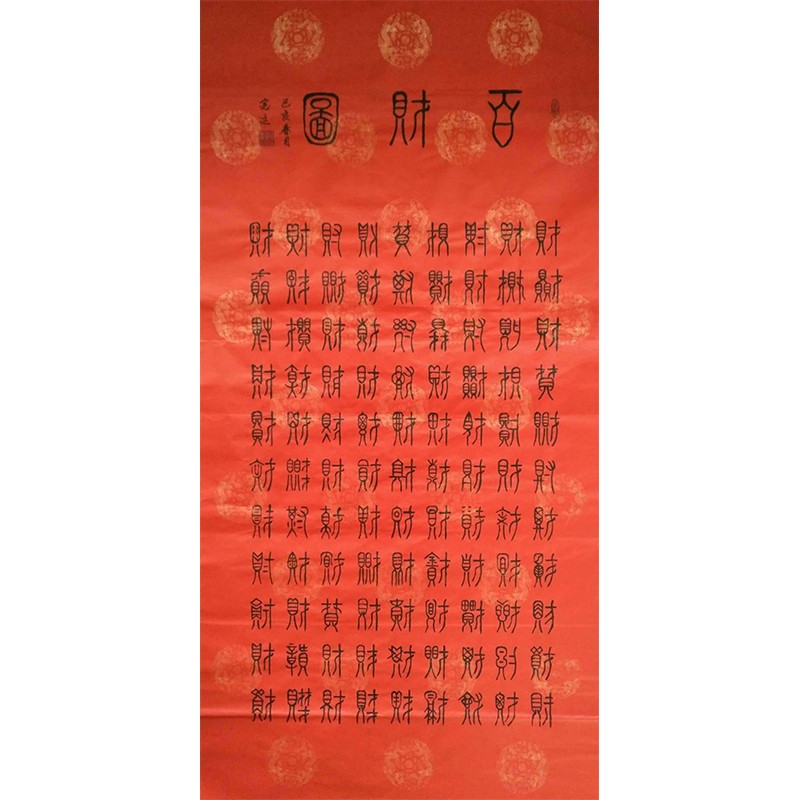 百財圖
己亥春月
財財財財財財財財財財財
財財財財財財財財財財財
財財財財財財財財財財財
財財財財財財財財財財財
財財財財財財財財財財財
財財財財財財財財財財財
財財財財財財財財財財財
財財財財財財財財財財財
財財財財財財財財財財財